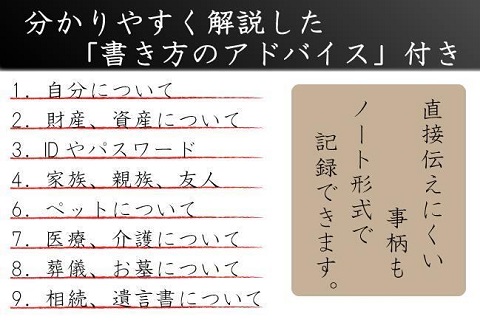 分かりやすく解説した
「書き方のアドバイス」付き
1. 自分について
2. 財産、資産について
3. IDやパスワード
4. 家族、親族、友人
6. ペットについて
7. 医療、介護について
8. 葬儀、お墓について
9. 相続、遺言書について
直接伝えにくい
事柄も
ノート形式で
記録できます。